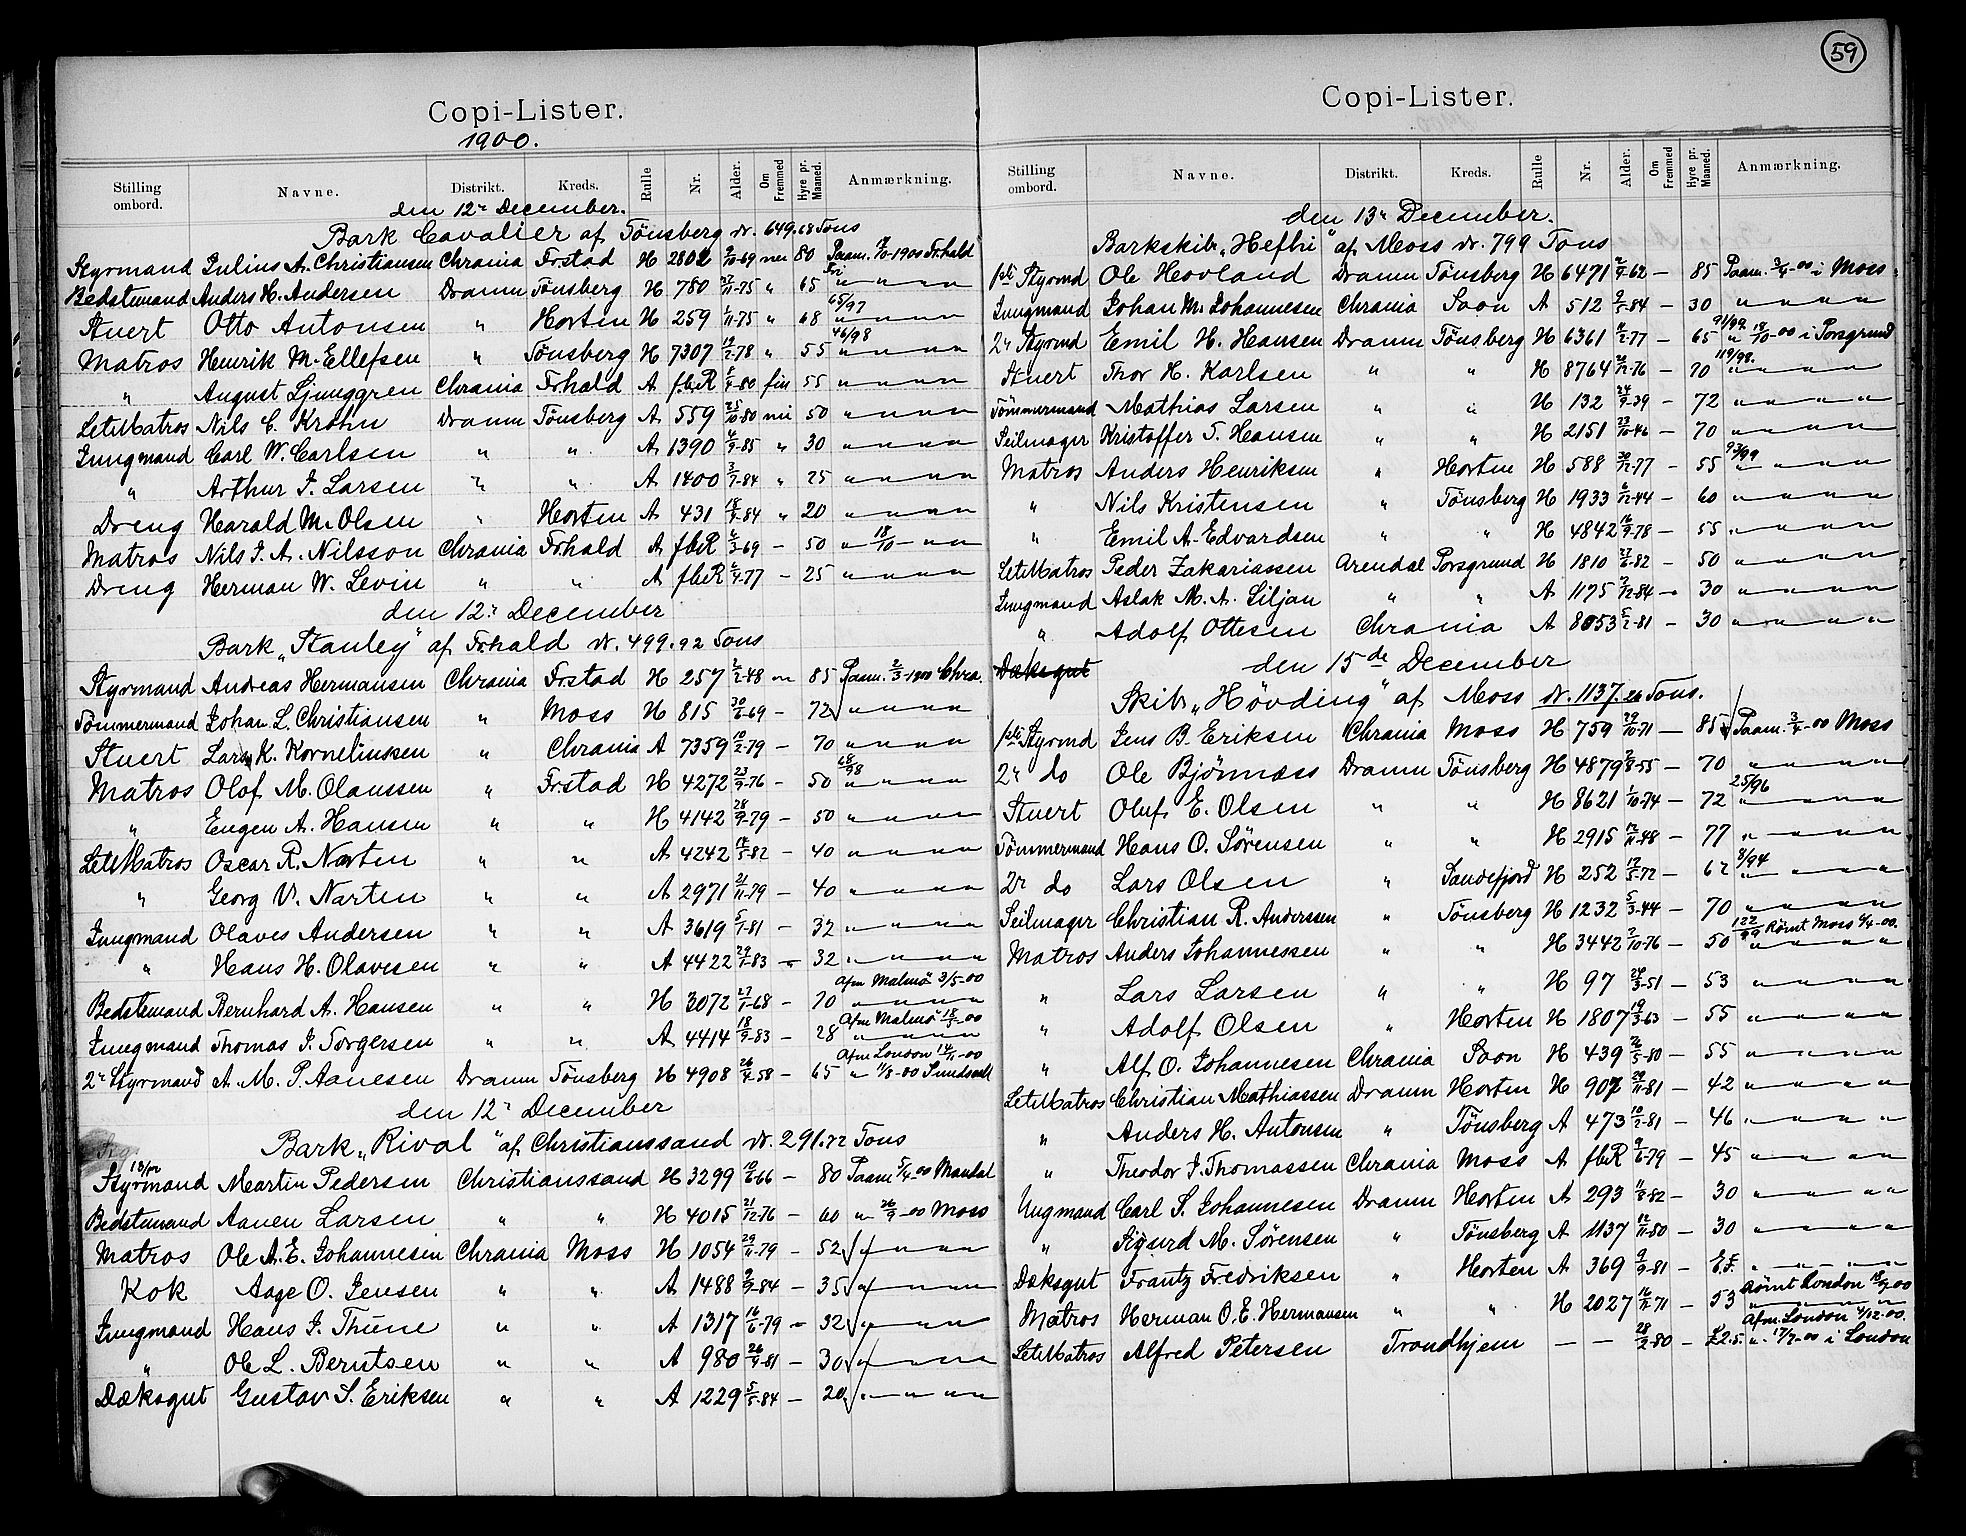 Copi-Lister.
1900.
Stilling ombord. Navne. Distrikt. Kreds. Rulle Nr. Alder. Om Fremmed Hyre pr. Maaned. Anmærkning.
den 12te December.
Bark Cavalier af Tönsberg dr. 649.68 Tons
Styrmand Julius A. Christiansen Chrania Frstad H 2802 9/10-69 nei 80 Paam. 9/10-1900 Frhald
Bedstemand Anders H. Andersen Dramn Tönsberg H 780 27/11-75 " 65 " " " "
Stuert Otto Antonsen " Horten H 259 1/11-75 " 68 65/97 " " " "
Matros Henrik M. Ellefsen " Tönsberg H 7307 19/2-78 " 55 46/98 " " " "
" August Ljunggren Chrania Frhald A fbeR 8/4-80 fin 55 " " " "
LetMatros Nils C. Krohn Dramn Tönsberg A 559 25/10-80 nei 50 " " " "
Jungmand Carl W. Carlsen " " A 1390 4/9-85 " 30 " " " "
" Arthur J. Larsen " " A 1400 3/7-84 " 25 " " " "
Dreng Harald M. Olsen " Horten A 431 18/9-84 " 20 " " " "
Matros Nils J. A. Nilsson Chrania Frhald A fbeR 6/3-69 — 50 " 18/10 — " "
Dreng Herman W. Levin " " A fbeR 6/4-77 — 25 " " " "
den 12te December
Bark "Stanley" af Frhald dr. 499.92 Tons
Styrmand Andreas Hermansen Chrania Frstad H 257 2/2-48 — 85 Paam. 2/3-1900 Chra.
Tömmermand Johan L. Christiansen " Moss H 815 30/6-69 — 72 " " " "
Stuert Lars K. Kornelinssen " Chrania A 7359 10/2-79 — 70 " " " "
Matros Olof M. Olaussen " Frstad H 4272 23/9-76 — 50 68/98 " " " "
" Eugen A. Hansen " " H 4142 28/9-79 — 50 " " " "
LetMatros Oscar R. Narten " " A 4242 14/5-82 — 40 " " " "
" Georg V. Narten " " A 2971 21/11-79 — 40 " " " "
Jungmand Olaves Andersen " " A 3619 5/1-81 — 32 " " " "
" Hans H. Olavesen " " A 4422 29/1-83 — 32 " " " "
Bedstemand Bernhard A. Hansen " " H 3072 27/1-68 — 70 Afm Malmö 3/5-00 " " " "
Jungmand Thomas J. Torgersen " " A 4414 18/9-83 — 28 Afm Malmö 18/5-00 " " " "
2n Styrmand A. M. P. Aanesen Dramn Tönsberg H 4908 26/4-58 — 65 Afm London 14/11-00 " 11/8-00 Sundsvall
den 12te December
Bark "Rival" af Christianssand dr. 291.72 Tons
Styrmand Martin Pedersen Christianssand H 3299 10/6-66 — 80 Paam 5/4-00 Mandal
Bedstemand Aanen Larsen " " H 4015 21/12-76 — 60 " 26/9-00 Moss
Matros Ole A. E. Johannesen Chrania Moss H 1054 29/11-79 — 52 " " " "
Kok Aage O. Jensen " " A 1488 9/9-84 — 35 " " " "
Jungmand Hans J. Thune " " A 1317 16/6-79 — 32 " " " "
" Ole L. Berntsen " " A 980 26/9-81 — 30 " " " "
Dæksgut Gustav S. Eriksen " " A 1229 5/5-84 — 20 " " " "
59
Copi-Lister.
Stilling ombord. Navne. Distrikt. Kreds. Rulle Nr. Alder. Om Fremmed Hyre pr. Maaned. Anmærkning.
den 13te December.
Barkskib "Hefhi" af Moss dr. 799 Tons
1ste Styrmd Ole Hovland Dramn Tönsberg H 6471 2/9-62 — 85 Paam. 3/4-00 i Moss
Jungmand Johan M. Johannesen Chrania Soon A 512 9/5-84 — 30 " " " "
2n Styrmd Emil H. Hansen Dramn Tönsberg H 6361 12/2-77 — 65 91/99 " 18/10-00 i Porsgrund
Stuert Thor H. Karlsen " " H 8764 20/12-76 — 70 119/98. " " " "
Tömmermand Mathias Larsen " " H 132 24/9-39 — 72 " " " "
Seilmager Kristoffer T. Hansen " " H 2151 23/10-46 — 70 " " " "
Matros Anders Henriksen " Horten H 588 30/12-77 — 55 93/99 " " " "
" Nils Kristensen " Tönsberg H 1933 6/12-44 — 60 " " " "
" Emil A. Edvardsen " " H 4842 16/9-78 — 55 " " " "
LetMatros Peder Zakariassen Arendal Porsgrund H 1810 27/6-82 — 50 " " " "
Jungmand Aslak M. A. Siljan " " A 1175 7/12-84 — 30 " " " "
" Adolf Ottesen Chrania A 8053 5/2-81 — 30 " " " "
Dæksgut
den 15de December
Skib "Hövding" af Moss dr. 1137.26 Tons.
1ste Styrmd Jens B. Eriksen Chrania Moss H 759 29/10-71 — 85 Paam. 3/4-00 Moss
2n do Ole Bjönnæss Dramn Tönsberg H 4879 2/8-55 — 70 " " " "
Stuert Oluf E. Olsen " " H 8621 1/10-74 — 72 25/96 " " " "
Tömmermand Hans O. Sørensen " " H 2915 12/11-48 — 77 " " " "
2n do Lars Olsen " Sandefjord H 252 17/5-72 — 62 8/94 " " " "
Seilmager Christian R. Anderssen " Tönsberg H 1232 5/3-44 — 70 " " " "
Matros Anders Johannessen " " H 3442 7/10-76 — 50 122/99 Rømt Moss 6/4-00. " " " "
" Lars Larsen " " H 97 24/3-51 — 53 " " " "
" Adolf Olsen " Horten H 1807 19/3-63 — 55 " " " "
" Alf O. Johannesen Chrania Soon H 439 26/5-80 — 55 " " " "
LetMatros Christian Mathiassen Dramn Horten H 907 29/11-81 — 42 " " " "
" Anders H. Antonsen " Tönsberg A 473 10/2-81 — 46 " " " "
" Theodor J. Thomassen Chrania Moss A fbeR 9/6-79 — 45 " " " "
Ungmand Carl S. Johannesen Dramn Horten A 293 11/8-82 — 30 " " " "
" Sigurd M. Sørensen " Tönsberg A 1137 12/11-80 — 30 " " " "
Dæksgut Frantz Fredriksen " Horten A 369 9/9-81 — E.F. " " " "
Matros Herman O. E. Hermansen " " H 2027 16/11-71 — 53 Rømt London 18/7-00 " " " "
LetMatros Alfred Petersen Trondhjem — — 28/2-80 — £2.5. Afm. London 4/12-00. " 17/7-00 i London